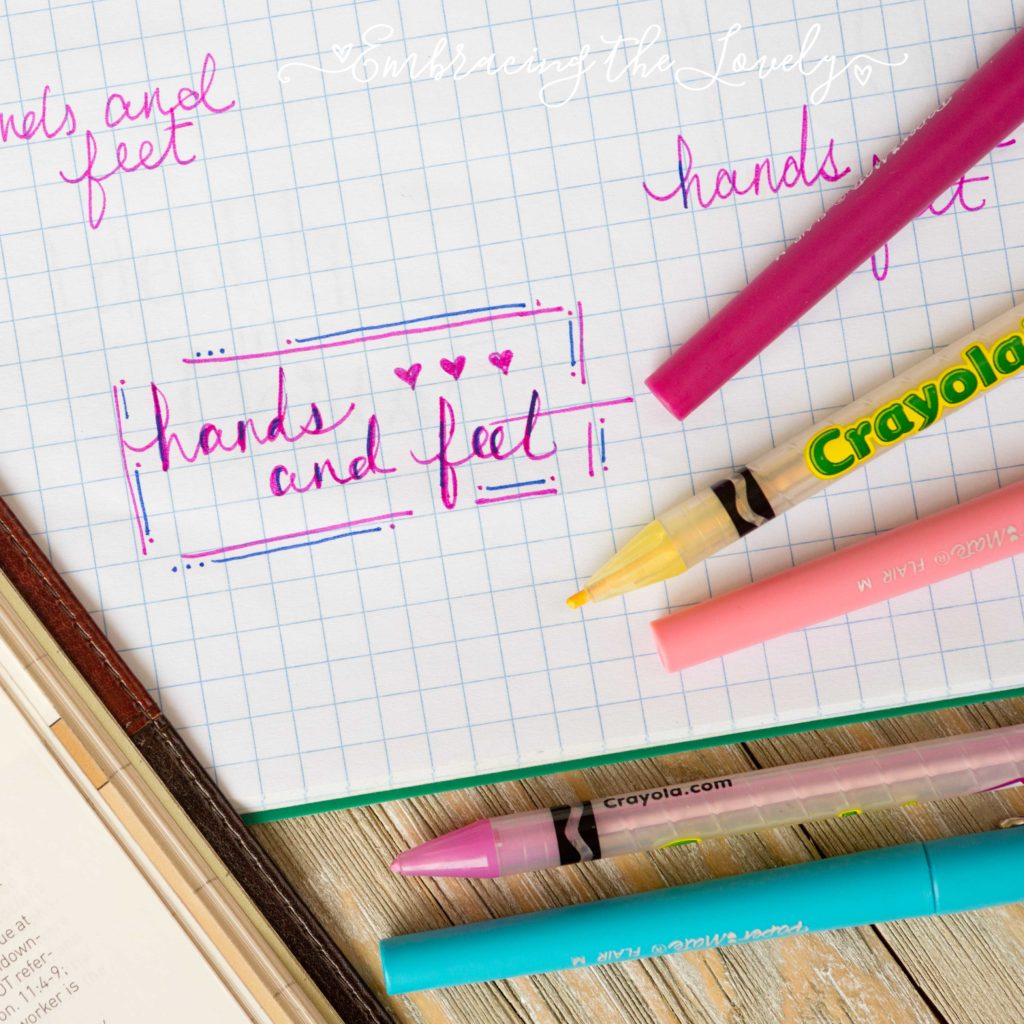 Embracing the Lovely
and
feet
hands
hands
and feet
Crayola
Mate® FLAIR M
Crayola.com
Paper Mate® FLAIR M
ue at
down-
OT refer-
on. 11:4-9;
worker is